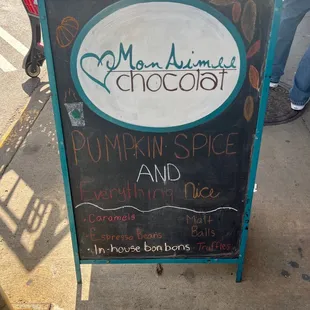 Mon Aimee
chocolat
PUMPKIN SPICE
AND
Everything Nice
Caramels
Malt
Balls
Espresso Beans
In-house bonbons
Truffles